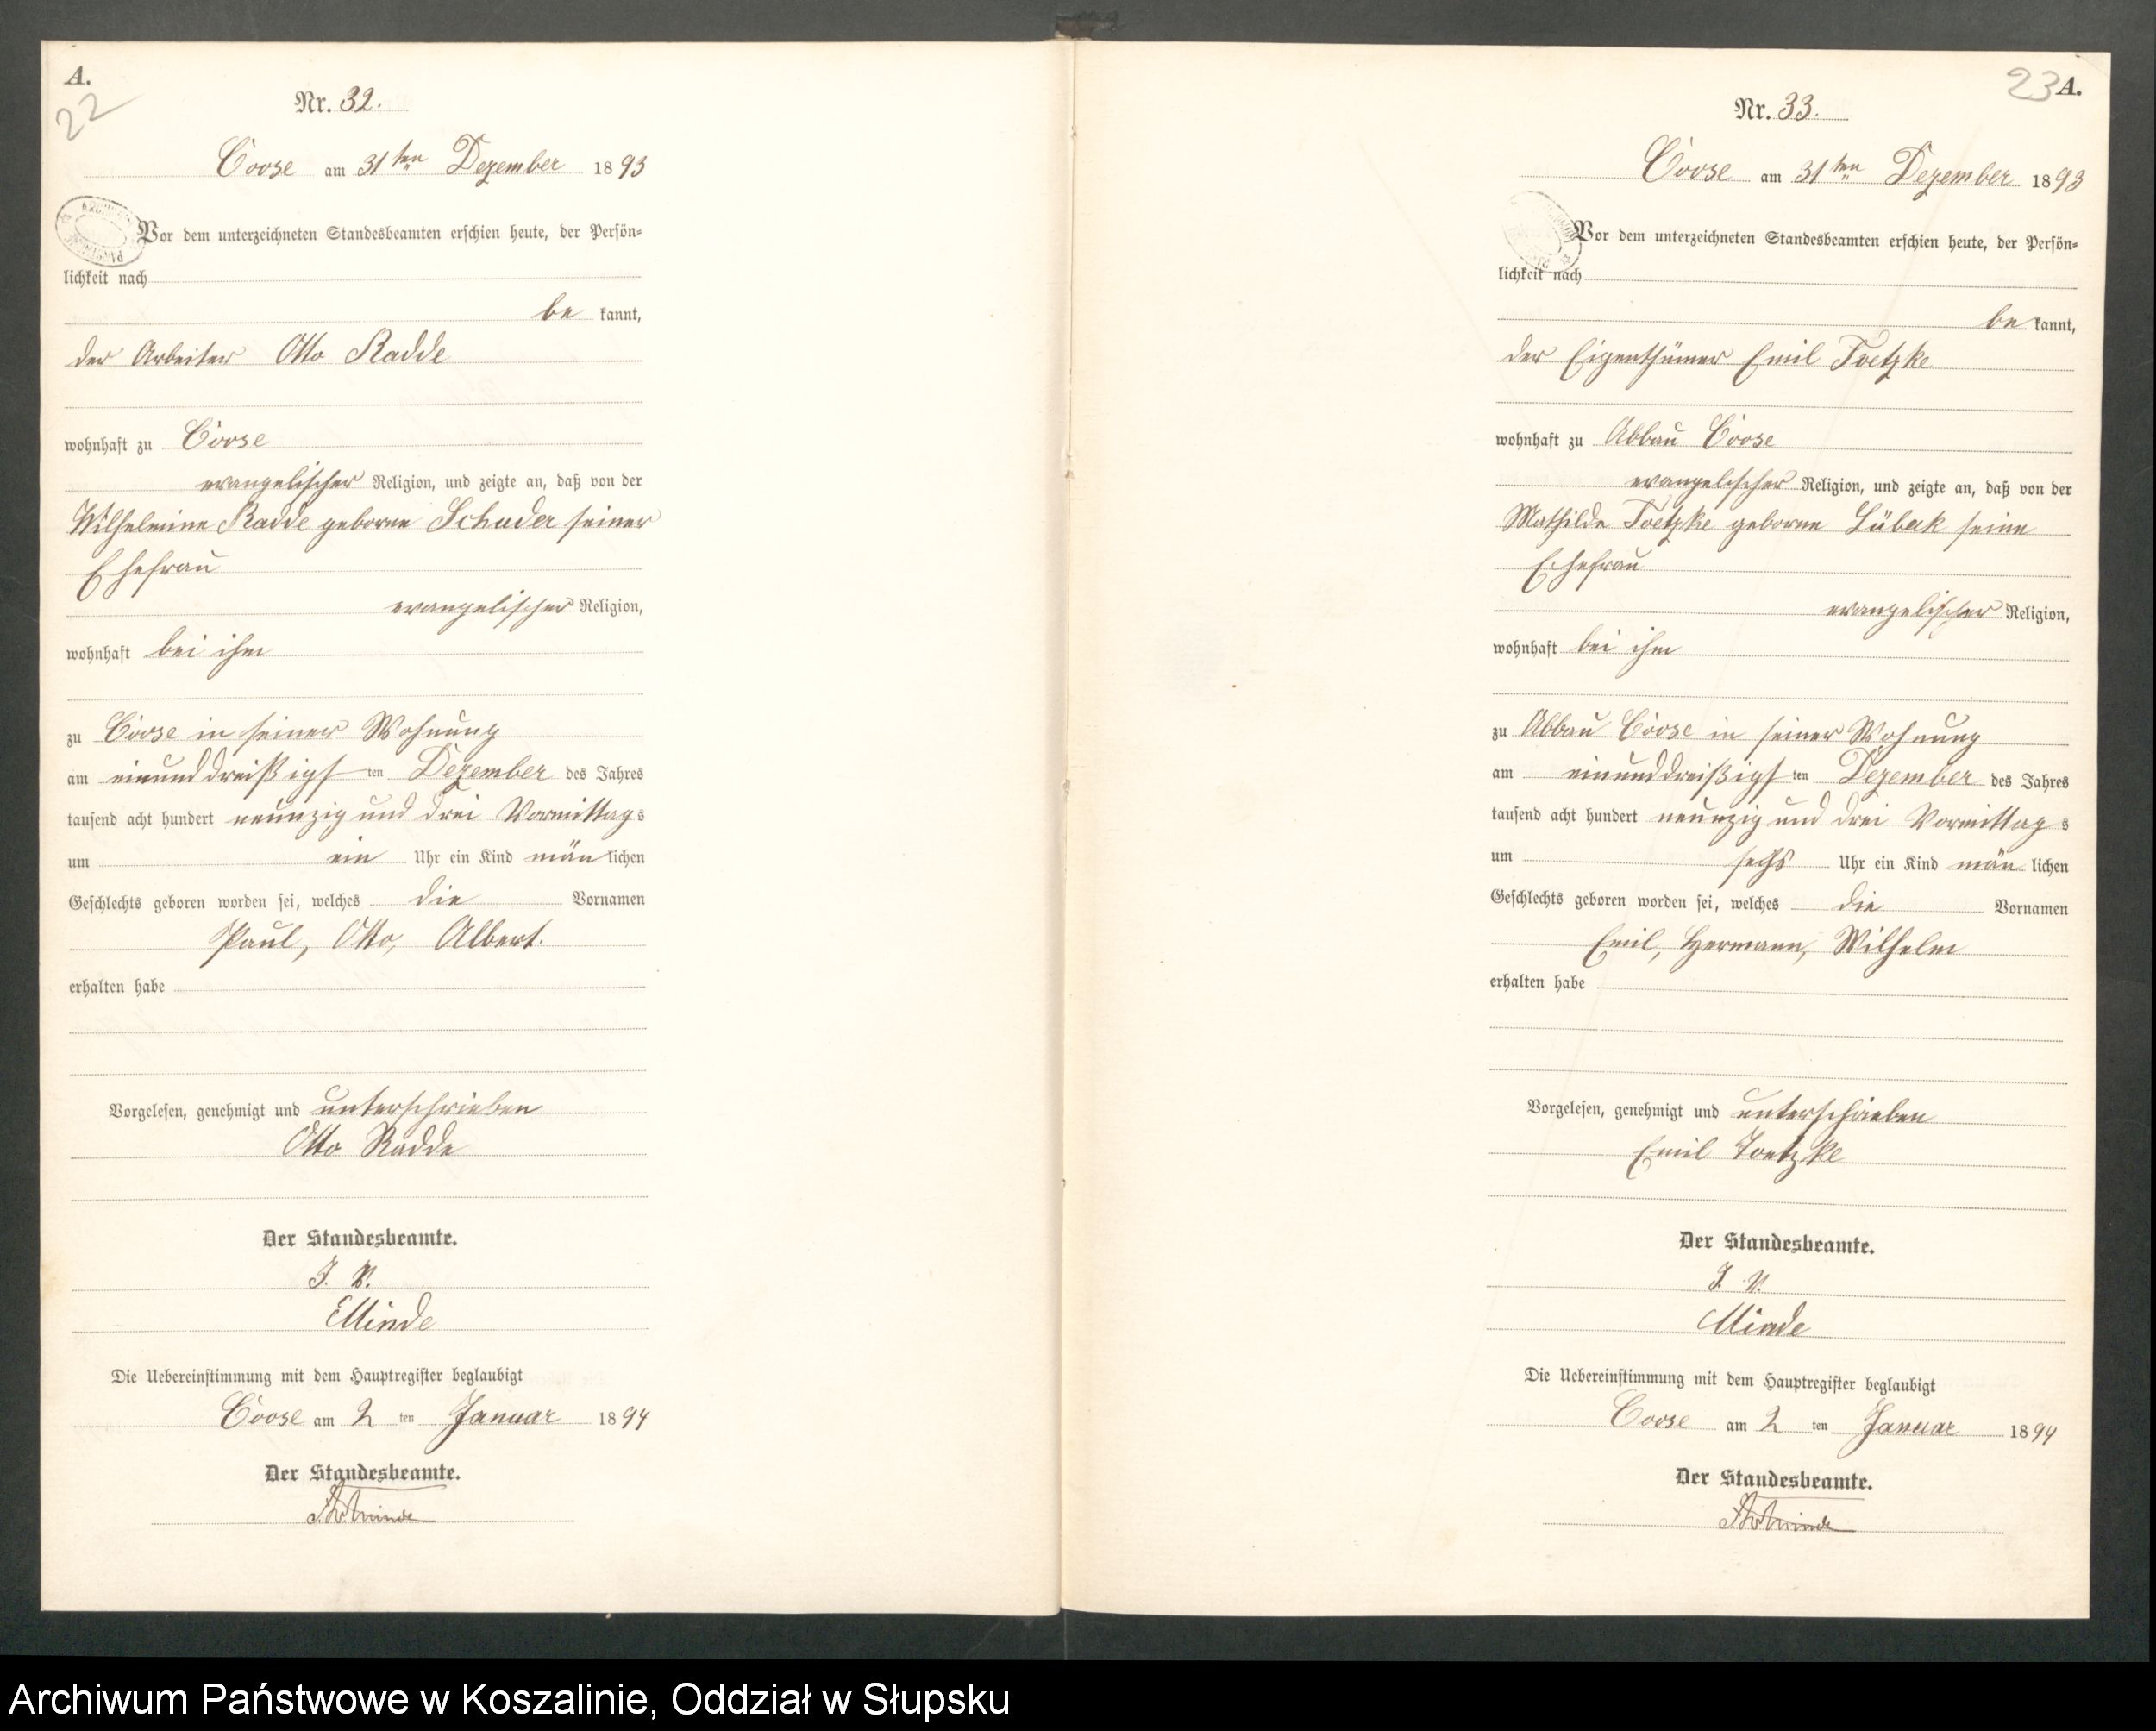 A.
22
Nr. 32.
Coose am 31ten Dezember 1893
Vor dem unterzeichneten Standesbeamten erschien heute, der Persön-
lichkeit nach
be kannt,
der Arbeiter Otto Radde
wohnhaft zu Coose
evangelischer Religion, und zeigte an, daß von der
Wilhelmine Radde geborne Schuder seiner
Ehefrau
evangelischer Religion,
wohnhaft bei ihm
zu Coose in seiner Wohnung
am einunddreißigsten Dezember des Jahres
tausend acht hundert neunzig und drei Vormittags
um ein Uhr ein Kind mänlichen
Geschlechts geboren worden sei, welches die Vornamen
Paul, Otto, Albert.
erhalten habe
Vorgelesen, genehmigt und unterschrieben
Otto Radde
Der Standesbeamte.
J. V.
Minde
Die Uebereinstimmung mit dem Hauptregister beglaubigt
Coose am 2 ten Januar 1894
Der Standesbeamte.
J. V. Minde
23 A.
Nr. 33.
Coose am 31ten Dezember 1893
Vor dem unterzeichneten Standesbeamten erschien heute, der Persön-
lichkeit nach
be kannt,
der Eigenthümer Emil Toetzke
wohnhaft zu Abbau Coose
evangelischer Religion, und zeigte an, daß von der
Mathilde Toetzke geborne Lübak seine
Ehefrau
evangelischer Religion,
wohnhaft bei ihm
zu Abbau Coose in seiner Wohnung
am einunddreißigsten Dezember des Jahres
tausend acht hundert neunzig und drei Vormittags
um sechs Uhr ein Kind mänlichen
Geschlechts geboren worden sei, welches die Vornamen
Emil, Hermann, Wilhelm
erhalten habe
Vorgelesen, genehmigt und unterschrieben
Emil Toetzke
Der Standesbeamte.
J. V.
Minde
Die Uebereinstimmung mit dem Hauptregister beglaubigt
Coose am 2 ten Januar 1894
Der Standesbeamte.
J. V. Minde
Archiwum Państwowe w Koszalinie, Oddział w Słupsku